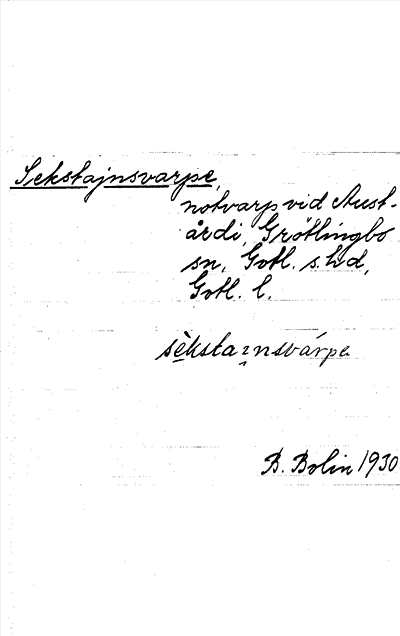 Sekstajnsvarpe,
notvarp vid Aust-
årdi, Grötlingbo
sn, Gotl. s. hd,
Gotl. l.
sèkstaınsvárpe
B. Bolin 1930